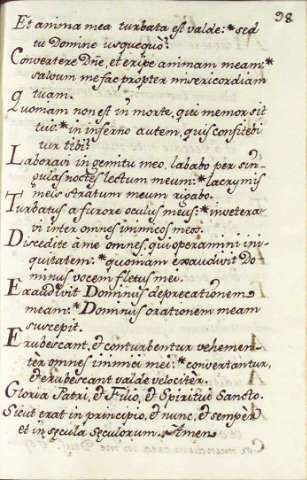 98
Et anima mea turbata est valde: * sed
tu Domine usquequò?
Convertere Dñe, et eripe animam meam: *
salvum me fac propter misericordiam
tuam.
Quoniam non est in morte, qui memor sit
tui: * in inferno autem, quis confitebi
tur tibi?
Laboravi in gemitu meo, lababo per sin
gulas noctes lectum meum: * lacrymis
meis stratum meum rigabo.
Turbatus a furore oculus meus: * invetera-
vi inter omnes inimicos meos.
Discedite à me omnes, qui operamini ini-
quitatem: * quoniam exaudivit Do
minus vocem fletus mei.
Exaudivit Dominus deprecationem
meam: * Dominus orationem meam
suscepit.
Erubescant, et conturbentur vehemen-
ter omnes inimici mei: * convertantur,
et erubescant valde velociter.
Gloria Patri, et Filio, et Spiritui Sancto.
Sicut erat in principio, et nunc, et semper
et in sęcula sęculorum. Amen